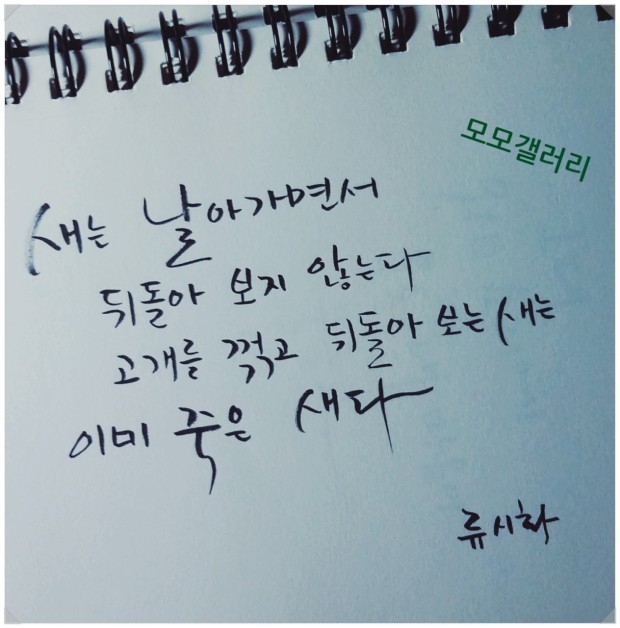 모모갤러리
새는 날아가면서
뒤돌아 보지 않는다
고개를 꺾고 뒤돌아 보는 새는
이미 죽은 새다
류시화